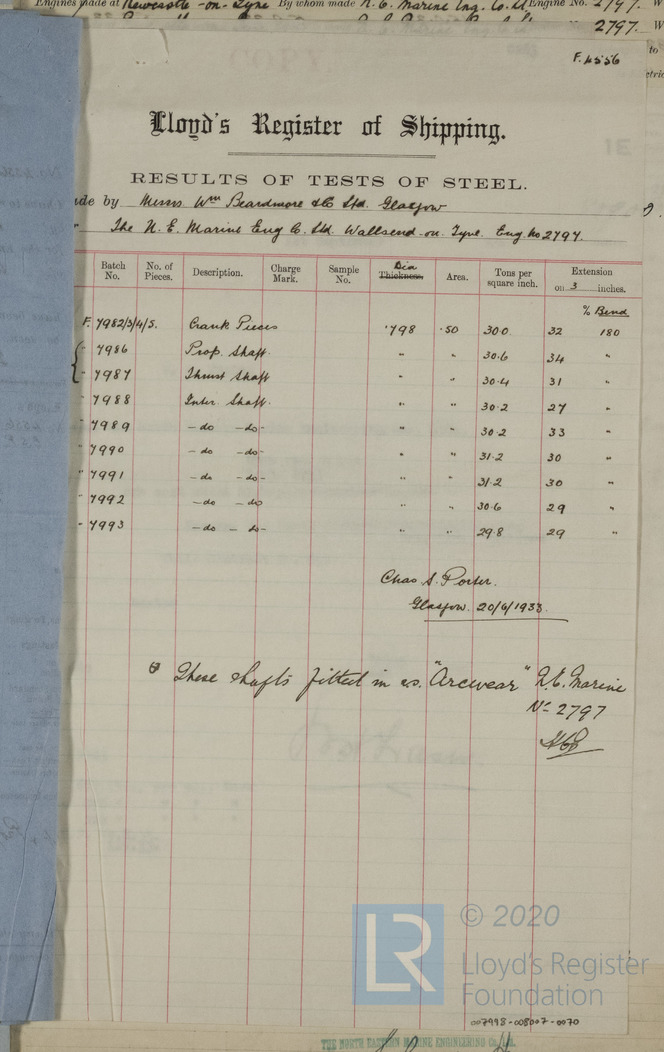 Engines made at Newcastle-on-Tyne By whom made N.E. Marine Eng. Co. Ld Engine No. 2797. W
2797. W
to
F. 4556
Lloyd's Register of Shipping.
RESULTS OF TESTS OF STEEL.
de by Messrs Wm Beardmore & Co Ltd. Glasgow
" The N. E. Marine Eng Co. Ltd. Wallsend-on-Tyne. Eng. No 2797.
Batch No. No. of Pieces. Description. Charge Mark. Sample No. Dia Thickness. Area. Tons per square inch. Extension on 3 inches.
% Bend
F. 7982/3/4/5. Crank Pieces .798 .50 30.0 32 180
" 7986 Prop. Shaft. " " 30.6 34 "
" 7987 Thrust Shaft " " 30.4 31 "
" 7988 Inter. Shaft. " " 30.2 27 "
" 7989 -do -do- " " 30.2 33 "
" 7990 -do -do- " " 31.2 30 "
" 7991 -do -do- " " 31.2 30 "
" 7992 -do -do " " 30.6 29 "
" 7993 -do - do- " " 29.8 29 "
Chas S. Porter.
Glasgow. 20/6/1933
These shafts fitted in s.s. "Arcwear" N.E. Marine
No 2797
© 2020
LR
Lloyd's Register
Foundation
007998-008007-0070
THE NORTH EASTERN MARINE ENGINEERING Co., Ltd.